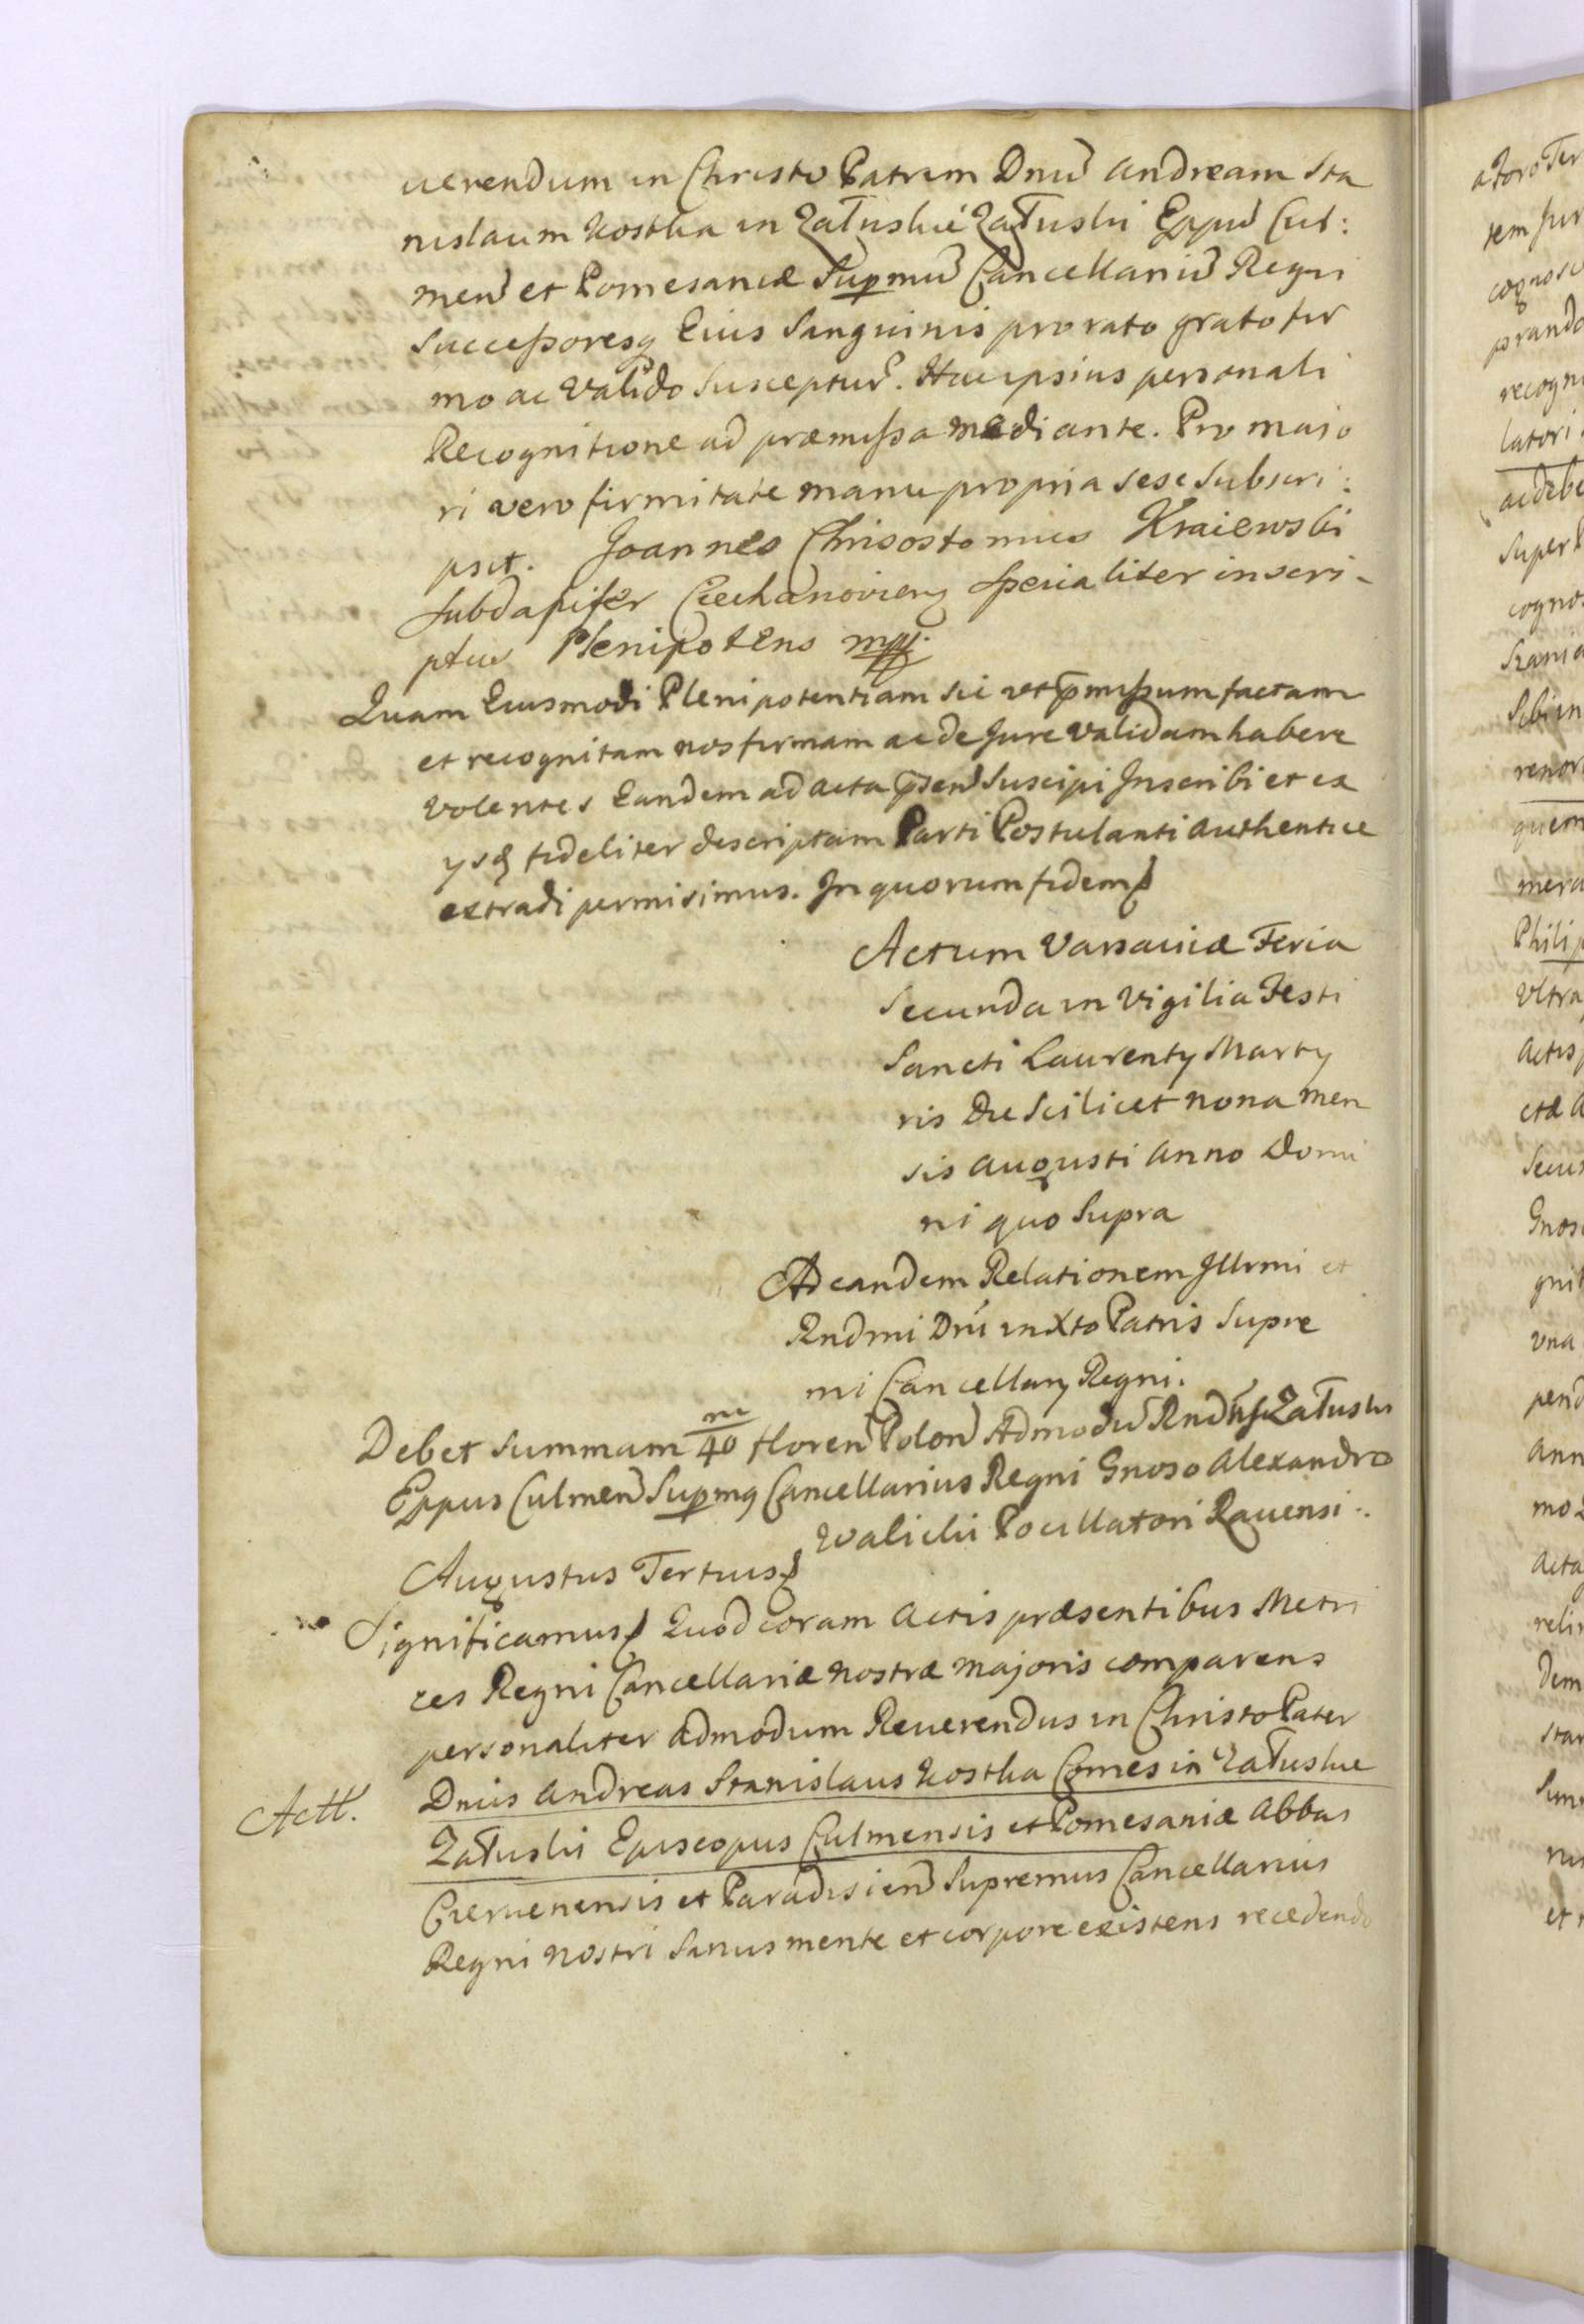 uerendum in Christo Patrem Dnu͠ Andream Sta
nislaum Kostka in Załuskie Załuski Eppu͠ Cul:
men͠ et Pomesaniæ Supmu͠ Cancellariu͠ Regni
Successoresq Eius Sanguinis pro rato grato fir
mo ac valido suscepturu͠. Hac ipsius personali
Recognitione ad præmissa mediante. Pro majo
ri vero firmitate manu propria sese subscri:
psit. Joannes Chrisostomus Kraiewski
Subdapifer Ciechanovienq specialiter inscri-
ptus Plenipotens mpp.
Quam Eiusmodi Plenipotentiam sic ut p͠missum factam
et recognitam nos firmam ac de Jure validam habere
volentes Eandem ad acta p͠sen͠ Suscipi Inscribi et ex
ysq fideliter descriptam Parti Postulanti authentice
extradi permisimus. In quorum fidem
Actum Varsaviæ Feria
Secunda in Vigilia Festi
Sancti Laurenty Marty
ris Die Scilicet nona Men
sis Augusti Anno Domi
ni quo Supra
Ad eandem Relationem Illrmi et
Rndmi Dni in Xto Patris Supre
mi Cancellary Regni.
Debet summam m/40 floren͠ Polon͠ Admodu͠ Rndus Załuski
Eppus Culmen͠ Supmq Cancellarius Regni Gnoso Alexandro
Walicki Pocillatori Ravensi:
Augustus Tertius
Significamus Quod coram Actis præsentibus Metri
ces Regni Cancellariæ nostræ majoris comparens
personaliter admodum Reverendus in Christo Pater
Actt.
Dnus Andreas Stanislaus Kostka Comes in Załuskie
Załuski Episcopus Culmensis et Pomesaniæ Abbas
Czervenensis et Paradisien͠ Supremus Cancellarius
Regni nostri Sanus mente et corpore existens recedendo
a foro Ter
cogno
prando
recogni
latori
super
cogno
sibi in
mera
Philip
Vltra
Actis
una
pend
Ann
Acta
Dem